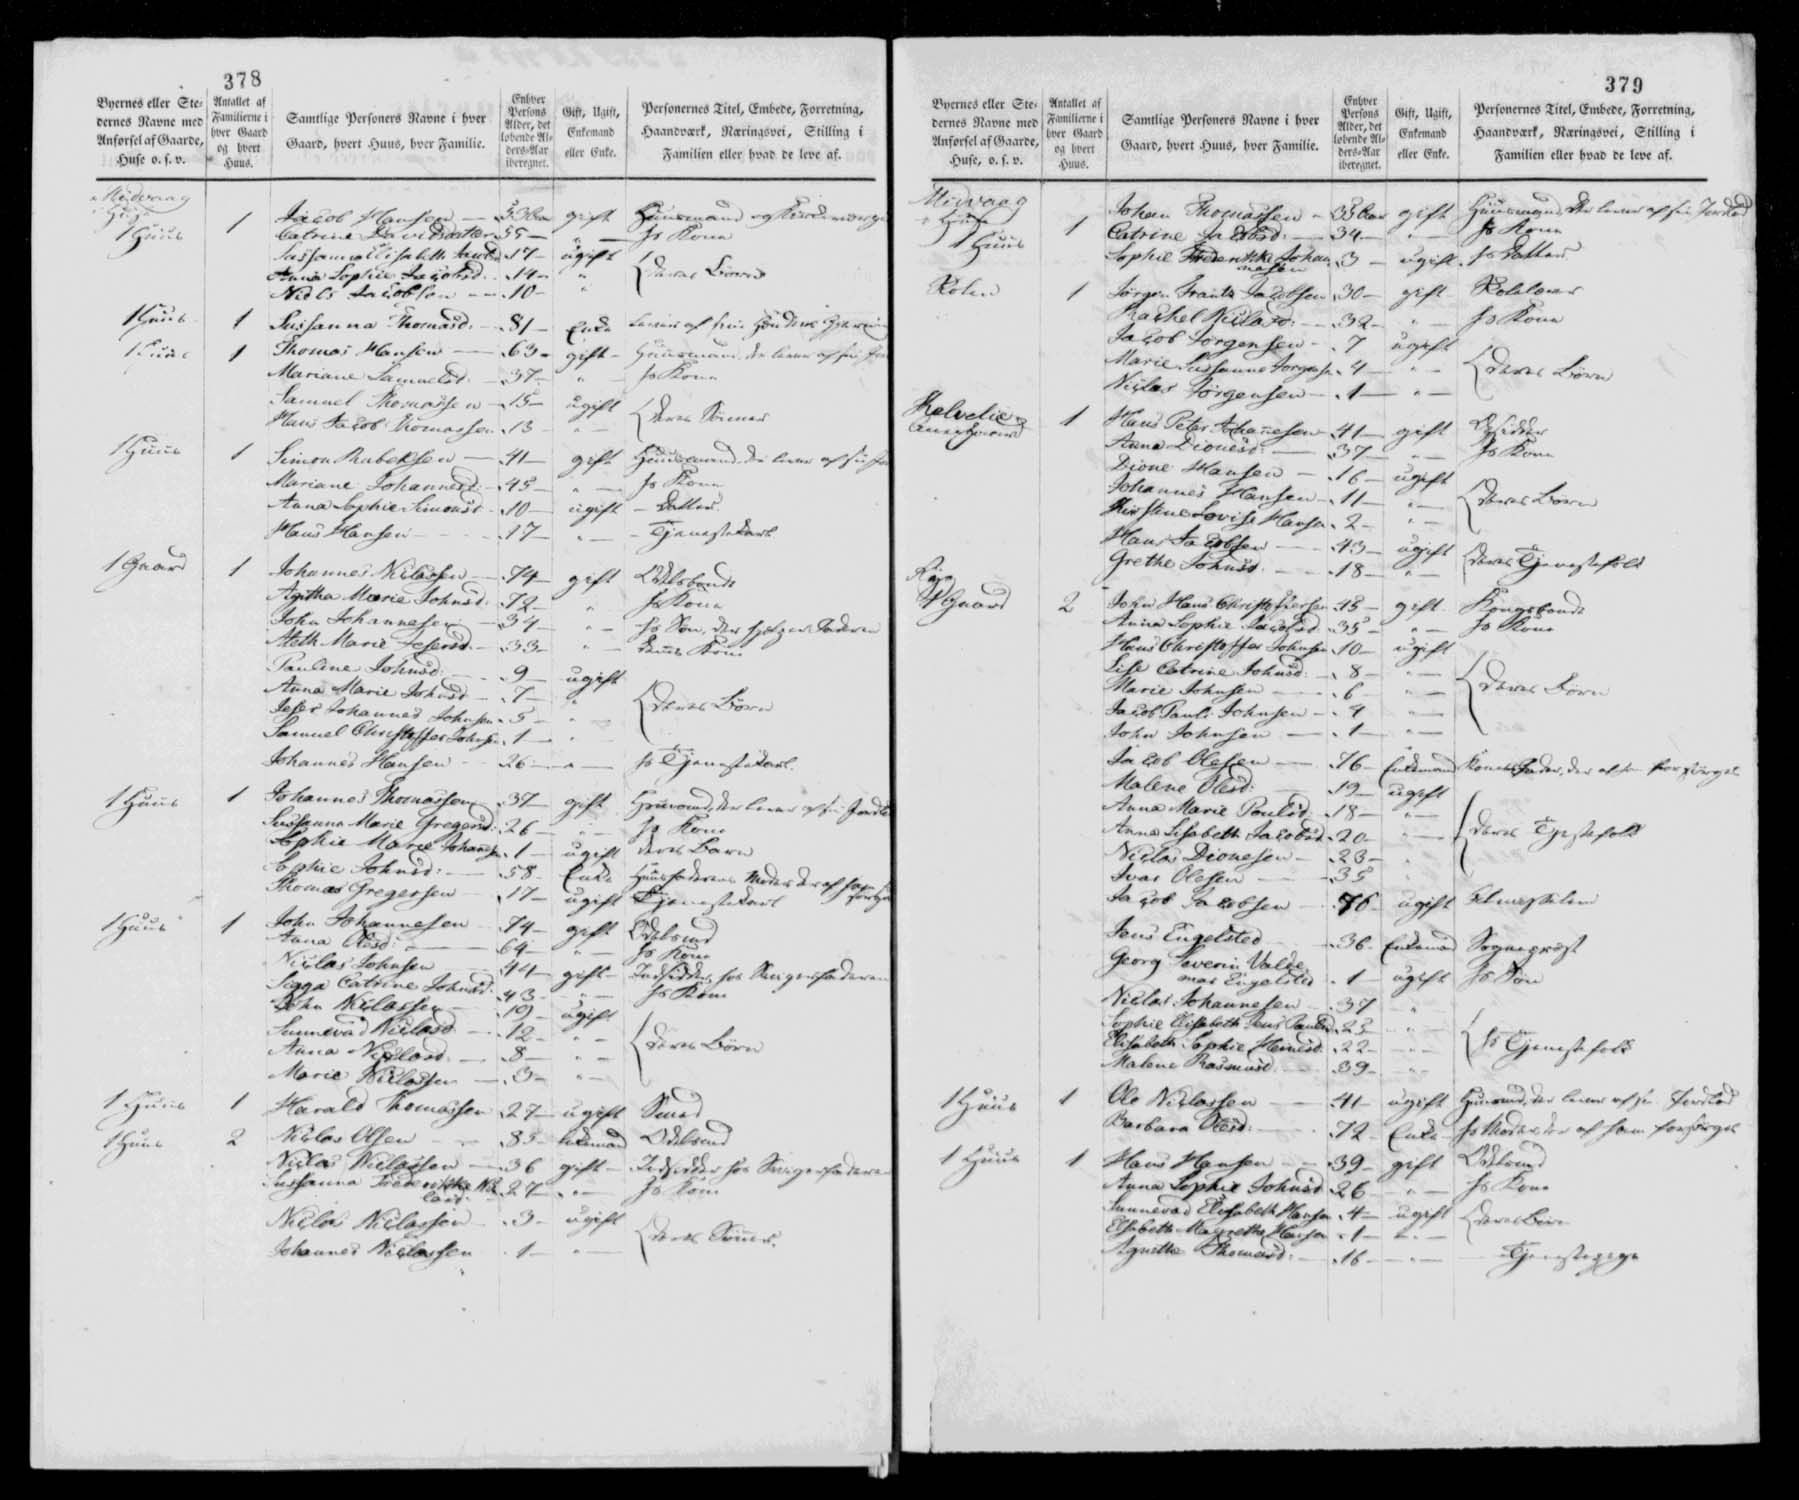 378
Byernes eller Ste-
dernes Navne med
Anførsel af Gaarde,
Huse o. s. v.
Antallet af
Familierne i
hver Gaard
og hvert
Huus.
Samtlige Personers Navne i hver
Gaard, hvert Huus, hver Familie.
Enhver
Persons
Alder, det
løbende Al-
ders-Aar
iberegnet.
Gift, Ugift,
Enkemand
eller Enke.
Personernes Titel, Embede, Forretning,
Haandværk, Næringsvei, Stilling i
Familien eller hvad de leve af.
Midvaag
1 Huus 1 Jacob Hansen gift Huusmand og
Catrine Davidsdatter 55 " hs Kone
17 ugift
Anna Sophie Jacobsd. 14 " deres Børn
Niels Jacobsen 10 "
1 Huus 1 Sussanna Thomasd. 81 Enke Lever af sine Hænders
1 Huus 1 Thomas Hansen 63 gift Huusmand, der lever af sin
Mariane Samuelsd. 37 " hs Kone
Samuel Thomassen 15 ugift deres Sønner
Hans Jacob Thomassen 13 "
1 Huus 1 Simon Rubeksen 41 gift Huusmand, der lever af sin
Mariane Johannesd. 45 " hs Kone
Anna Sophie Simonsd. 10 ugift Datter
Hans Hansen 17 " Tjenestekarl
1 Gaard 1 Johannes Niclassen 74 gift Odelsbonde
Agitha Marie Johnsd. 72 " hs Kone
John Johannesen 34 " hs Søn, der hjelper Faderen
Marie 33 " Kone
Pauline Johnsd. 9 ugift
Anna Marie Johnsd. 7 " deres Børn
Johannes Johnsen 5 "
Samuel Christoffer Johnsen 1 "
Johannes Hansen 26 " hs Tjenestekarl.
1 Huus 1 Johannes Thomassen 37 gift Huusmand, der lever af sin Jordlod
Sussanna Marie Gregersd. 26 " hs Kone
Sophie Marie 1 ugift deres Barn
Sophie Johnsd. 58 Enke Huusfaderens Moder, der af ham
Thomas Gregersen 17 ugift Tjenestekarl
1 Huus 1 John Johannesen 74 gift Odelsmd
Anna Olesd. 64 " hs Kone
Niclas Johnsen 44 gift Indsidder, hos Svigerfaderen
Sigga Catrine Johnsd. 43 " hs Kone
John Niclassen 19 ugift
Sunnevad Niclasd. 12 " deres Børn
Anna Niclasd. 8 "
Marie Niclassen 3 "
1 Huus 1 Harald Thomassen 27 ugift Smed
1 Huus 2 Niclas Olsen 85 Enkemand Odelsmd
Niclas Niclassen 36 gift Indsidder hos Svigerfaderen
Sussanna Frederikke Nic-
lasd. 27 " hs Kone
Niclas Niclassen 3 ugift deres Sønner.
Johannes Niclassen 1 "
379
Byernes eller Ste-
dernes Navne med
Anførsel af Gaarde,
Huse, o. s. v.
Antallet af
Familierne i
hver Gaard
og hvert
Huus.
Samtlige Personers Navne i hver
Gaard, hvert Huus, hver Familie.
Enhver
Persons
Alder, det
løbende Al-
ders-Aar
iberegnet.
Gift, Ugift,
Enkemand
eller Enke.
Personernes Titel, Embede, Forretning,
Haandværk, Næringsvei, Stilling i
Familien eller hvad de leve af.
Midvaag
1 Huus 1 Johan Thomassen 35 Aar gift Huusmand, der lever af sin Jordlod
Catrine Jacobsd. 34 " hs Kone
Sophie Frederikke Johan-
nesen 3 ugift hs Datter
1 Jørgen Frantz Jacobsen 30 gift
Rachel Niclasd. 32 " hs Kone
Jacob Jørgensen 7 ugift
Marie Sussanne Jørgensen 4 " deres Børn
Niclas Jørgensen 1 "
1 Hans Peter Johannesen 41 gift
Anna Dionesd. 37 " hs Kone
Dione Hansen 16 ugift
Johannes Hansen 11 " deres Børn
Kirstine Lovise Hansen 2 "
Hans Jacobsen 43 ugift deres Tjenestefolk
Grethe Johnsd. 18 "
Gaard 2 John Hans Christoffersen 45 gift Kongsbonde
Anna Sophie Jacobsd. 35 " hs Kone
Hans Christoffer Johnsen 10 ugift
Lise Catrine Johnsd. 8 " deres Børn
Marie Johnsen 6 "
Jacob Pauli Johnsen 4 "
John Johnsen 1 "
Jacob Olesen 76 Enkemand Konens Fader, der af ham forsørges
Malene Olesd. 19 ugift
Anna Marie Poulsd. 18 "
Anna Lisabeth Jacobsd. 20 " deres Tjenestefolk
Niclas Dionesen 23 "
Ivar Olesen 35
Jacob Jacobsen 76 ugift Almisselem
Jens Engelsted 36 Enkemand Sognepræst
Georg Severin Valde-
mar Engelsted 1 ugift hs Søn
Niclas Johannesen 37 "
Sophie Elisabeth 23 "
Elisabeth Sophie 22 " hs Tjenestefolk
Malene Rasmusd. 39 "
1 Huus 1 Ole Niclassen 41 ugift Huusmd, der lever af sin Jordlod
Barbara Olesd. 72 Enke hs Moder, der af ham forsørges
1 Huus 1 Hans Hansen 39 gift Odelsmd
Anna Sophie Johnsd. 26 " hs Kone
Sunnevad Elisabeth Hansen 4 ugift deres Børn
Elsebeth Magrethe Hansen 1 "
Agnethe Thomasd. 16 " Tjenestepige